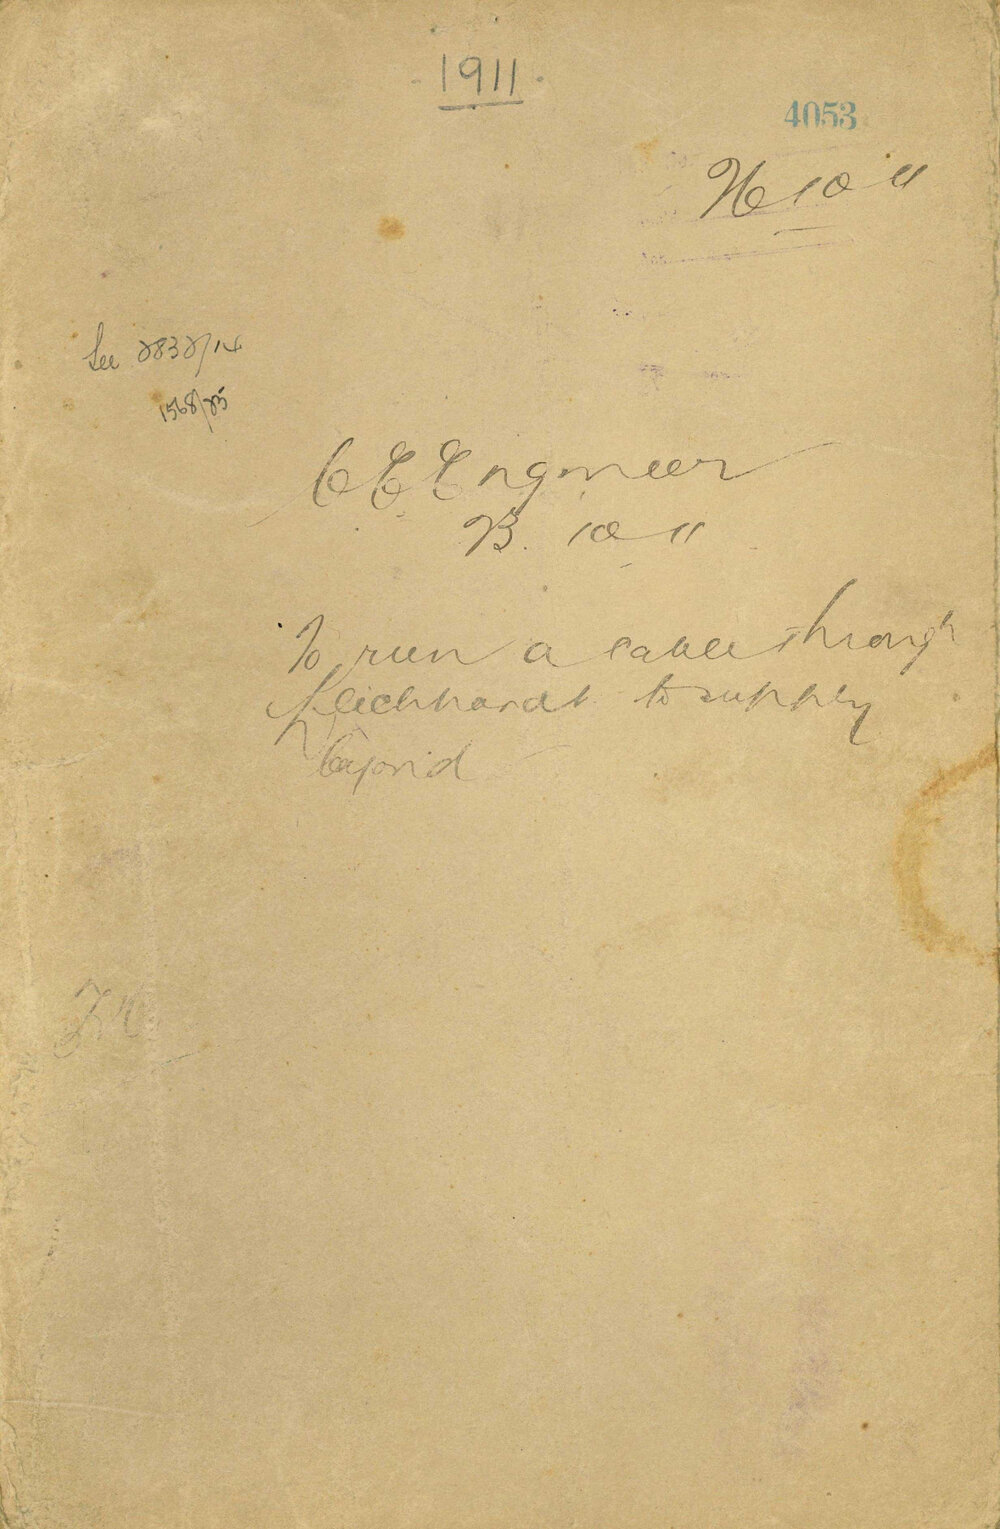 1911
4053
26 10 11
See 2832/14
1568/25
C E Engineer
23. 10 11
To run a cable through
Leichhardt to supply